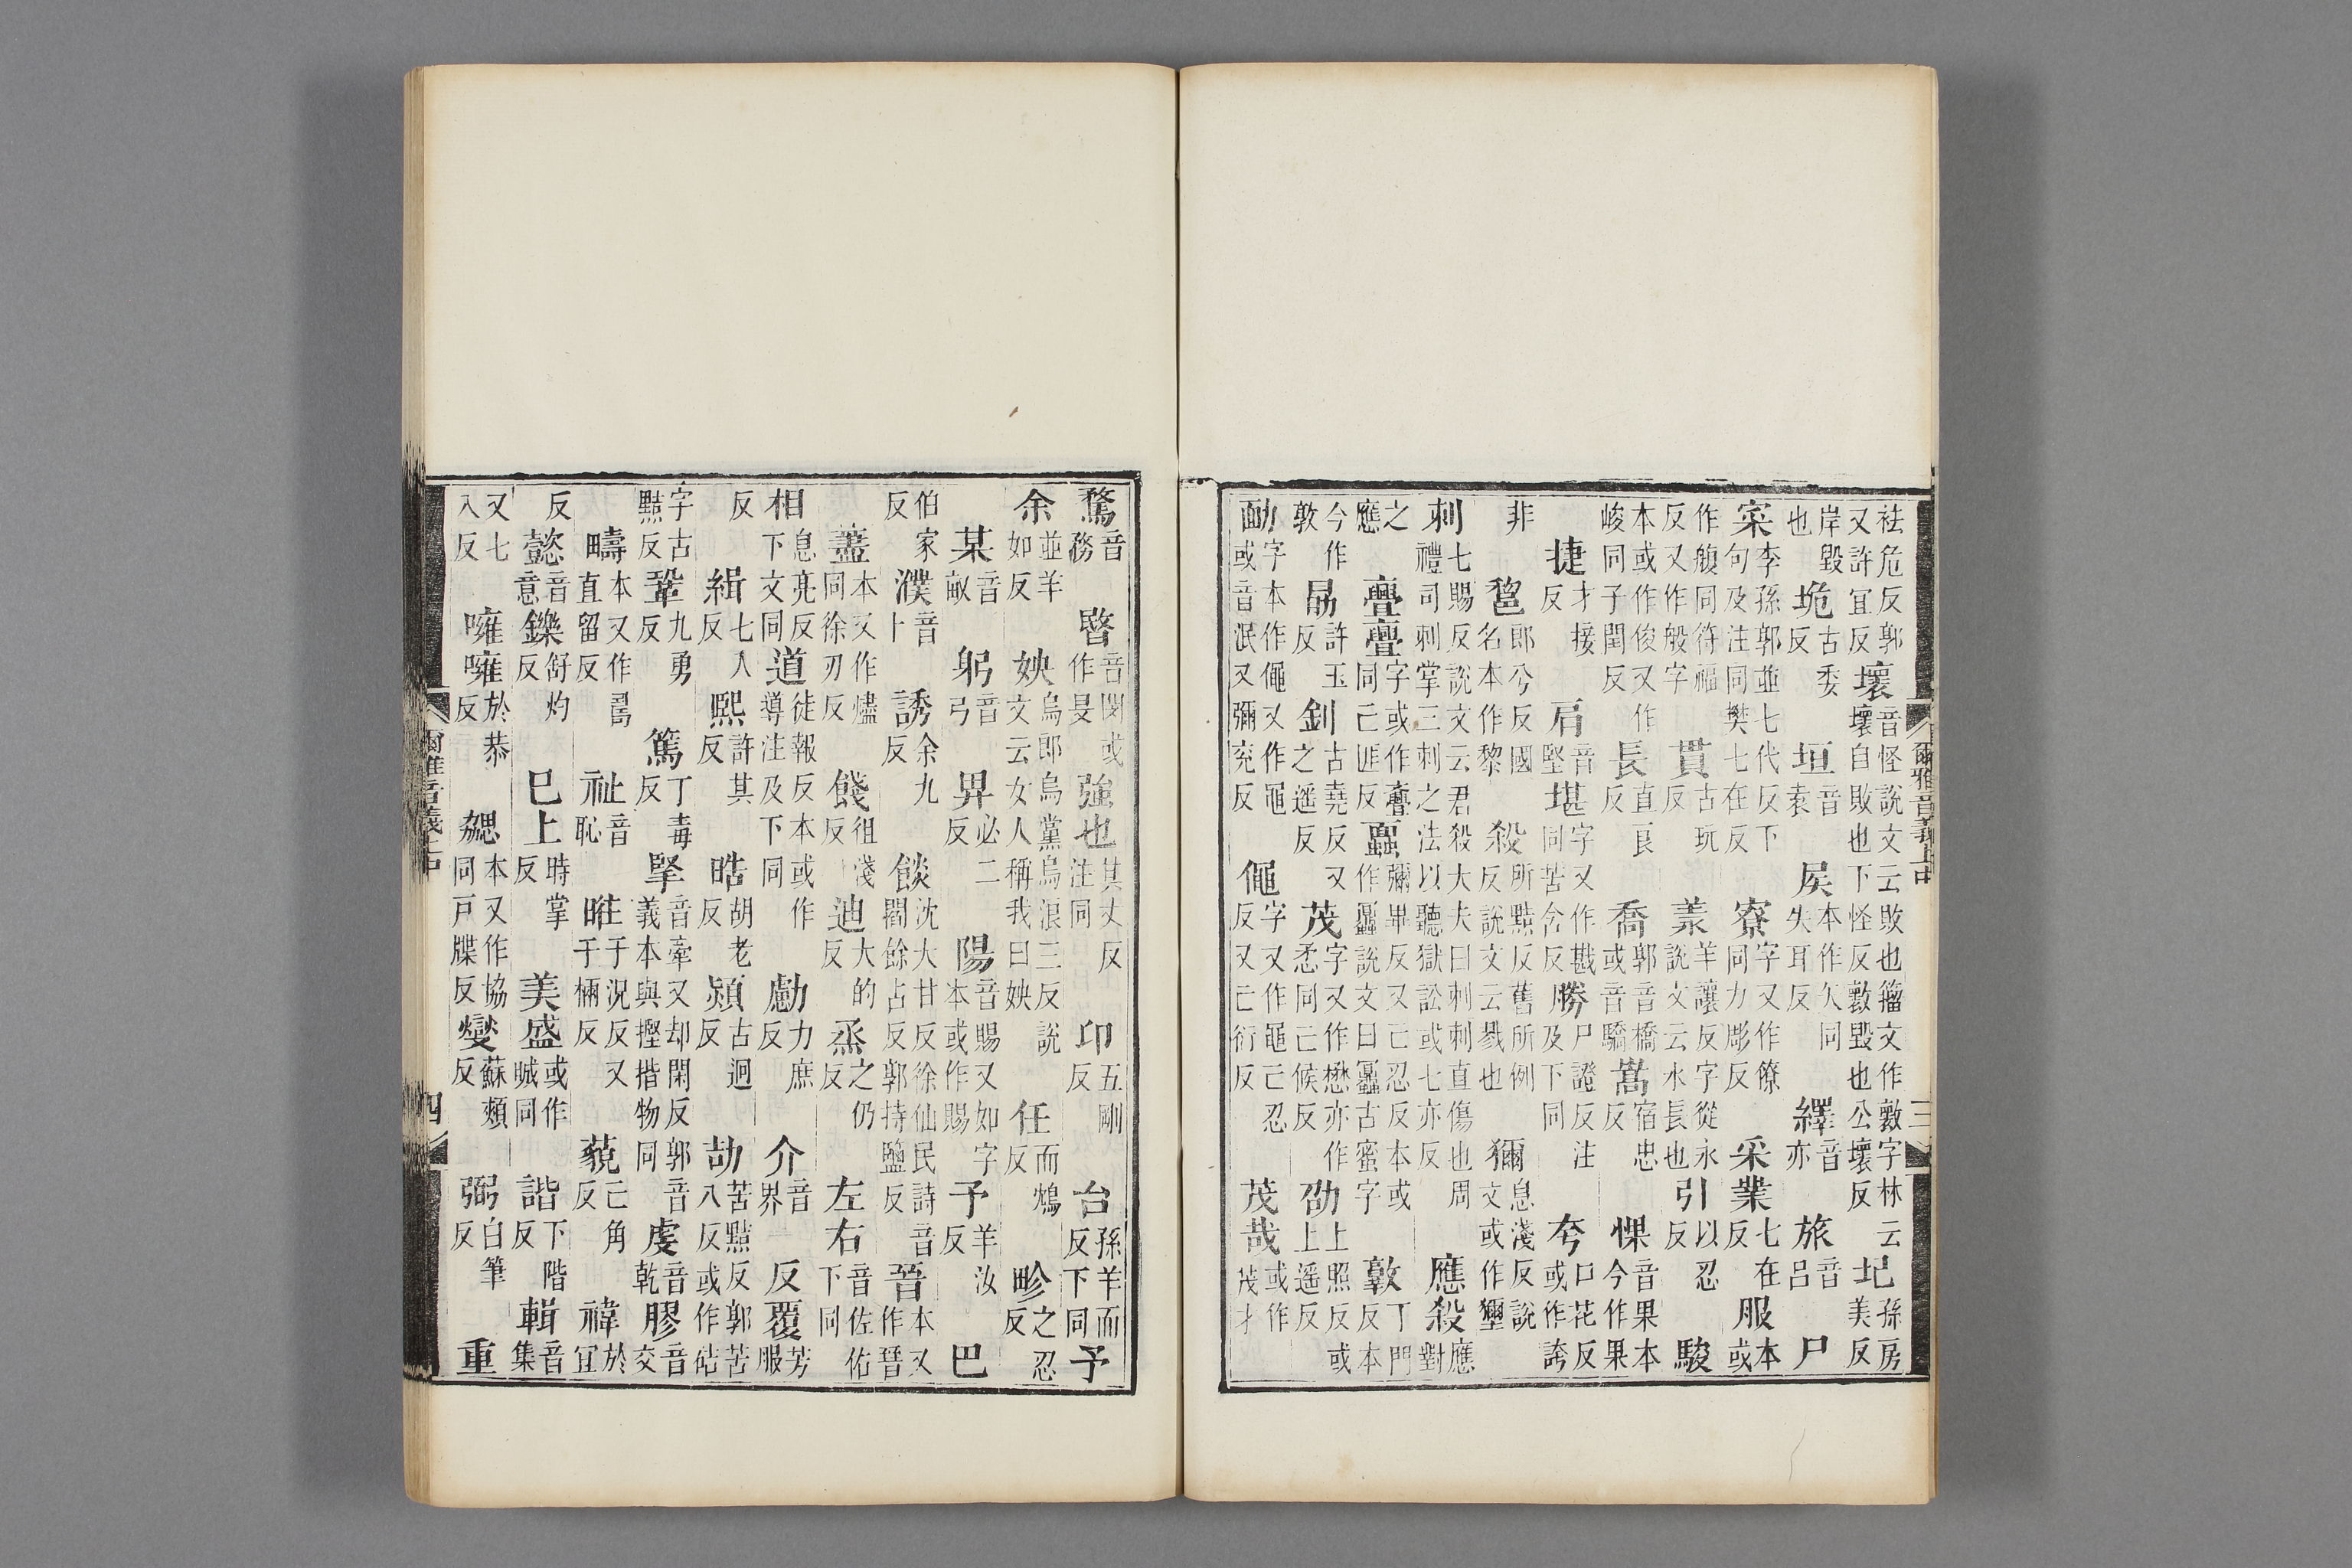 祛危反郭又許宜反壞音怪說文云敗也籀文作敳字林云壞自敗也下怪反敳毀也公壞反圮孫房美反
岸毀也垝古委反垣音袁本作矢同失耳反繹音亦旅音呂尸
寀李孫郭並七代反下句及注同樊七在反寮字又作僚同力彫反采業七在反服本或
作䑧同符福反又作般字貫古玩反羕羊讓反字從永說文云水長也引以忍反駿
本或作俊又作峻同子閏反長直良反喬郭音橋或音驕嵩宿忠反惈音果本今作果
捷才接反肩音堅堪字又作戡同苦含反勝尸證反注及下同夸口花反或作誇
非郎兮反國名本作黎殺所黠反舊所例反說文云戮也獮息淺反說文或作
刺七賜反說文云君殺大夫曰刺刺直傷也周禮司刺掌三刺之法以聽獄訟或七亦反應殺應對
之應亹亹字或作斖同亡匪反蠠彌畢反又亡忍反本或作說文曰蠠古蜜字敦丁門反本
今作敦勗許玉反釗古堯反又之遥反茂字又作懋亦作悉同亡候反劭上照反或上遥反
勔字本作僶又作黽或音泯又彌兖反僶字又作黽亡忍反又亡衍反茂哉或作茂才
爾雅音義上中
三
鶩音務暋音閔或作旻強也其丈反注同卬五剛反台孫羊而反下同予
余並羊如反姎烏郎烏黨烏浪三反說文云女人稱我曰姎任而鴆反畛之忍反
某音畝躬音弓畀必二反陽音賜又如字本或作賜予羊汝反巴
伯家反濮音卜誘余九反餤沈大甘反徐仙民詩音閻餘占反郭持鹽反晉本又作晉
藎本又作燼同徐刃反餞徂淺反迪大的反烝之仍反左右音佐佑下同
相息亮反下文同道徒報反本或作導注及下同勴力庶反介音界反覆芳服
反緝七人反熙許其反晧胡老反熲古迥反劼苦黠反郭苦八反或作硈
字古黠反鞏九勇反篤丁毒反掔音牽又却閑反郭音義本與摼揩物同虔音乾膠音交
疇本又作直留反祉音恥暀于況反又于反藐亡角反禕於宜
反懿音意鑠舒灼反巳上時掌反美盛或作晠同諧下階反輯音集
又七入反噰噰於恭反勰本又作協同戸牒反燮蘇頰反弼白筆反重
爾雅音義上中
四